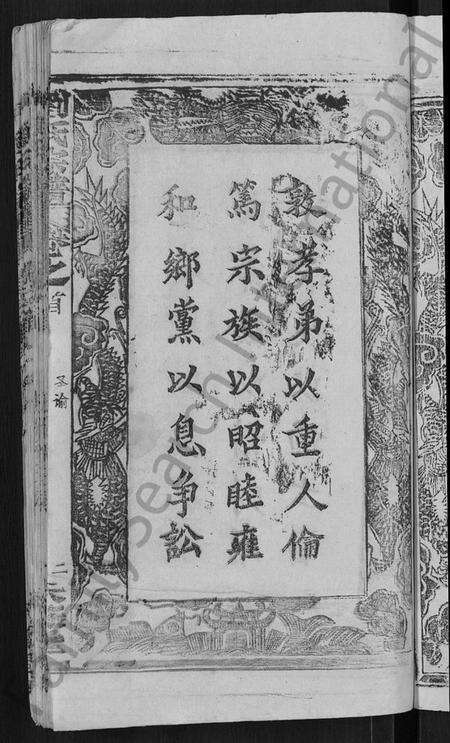 敦孝弟以重人倫
篤宗族以昭睦雍
和鄉黨以息爭訟
卷之首
聖諭